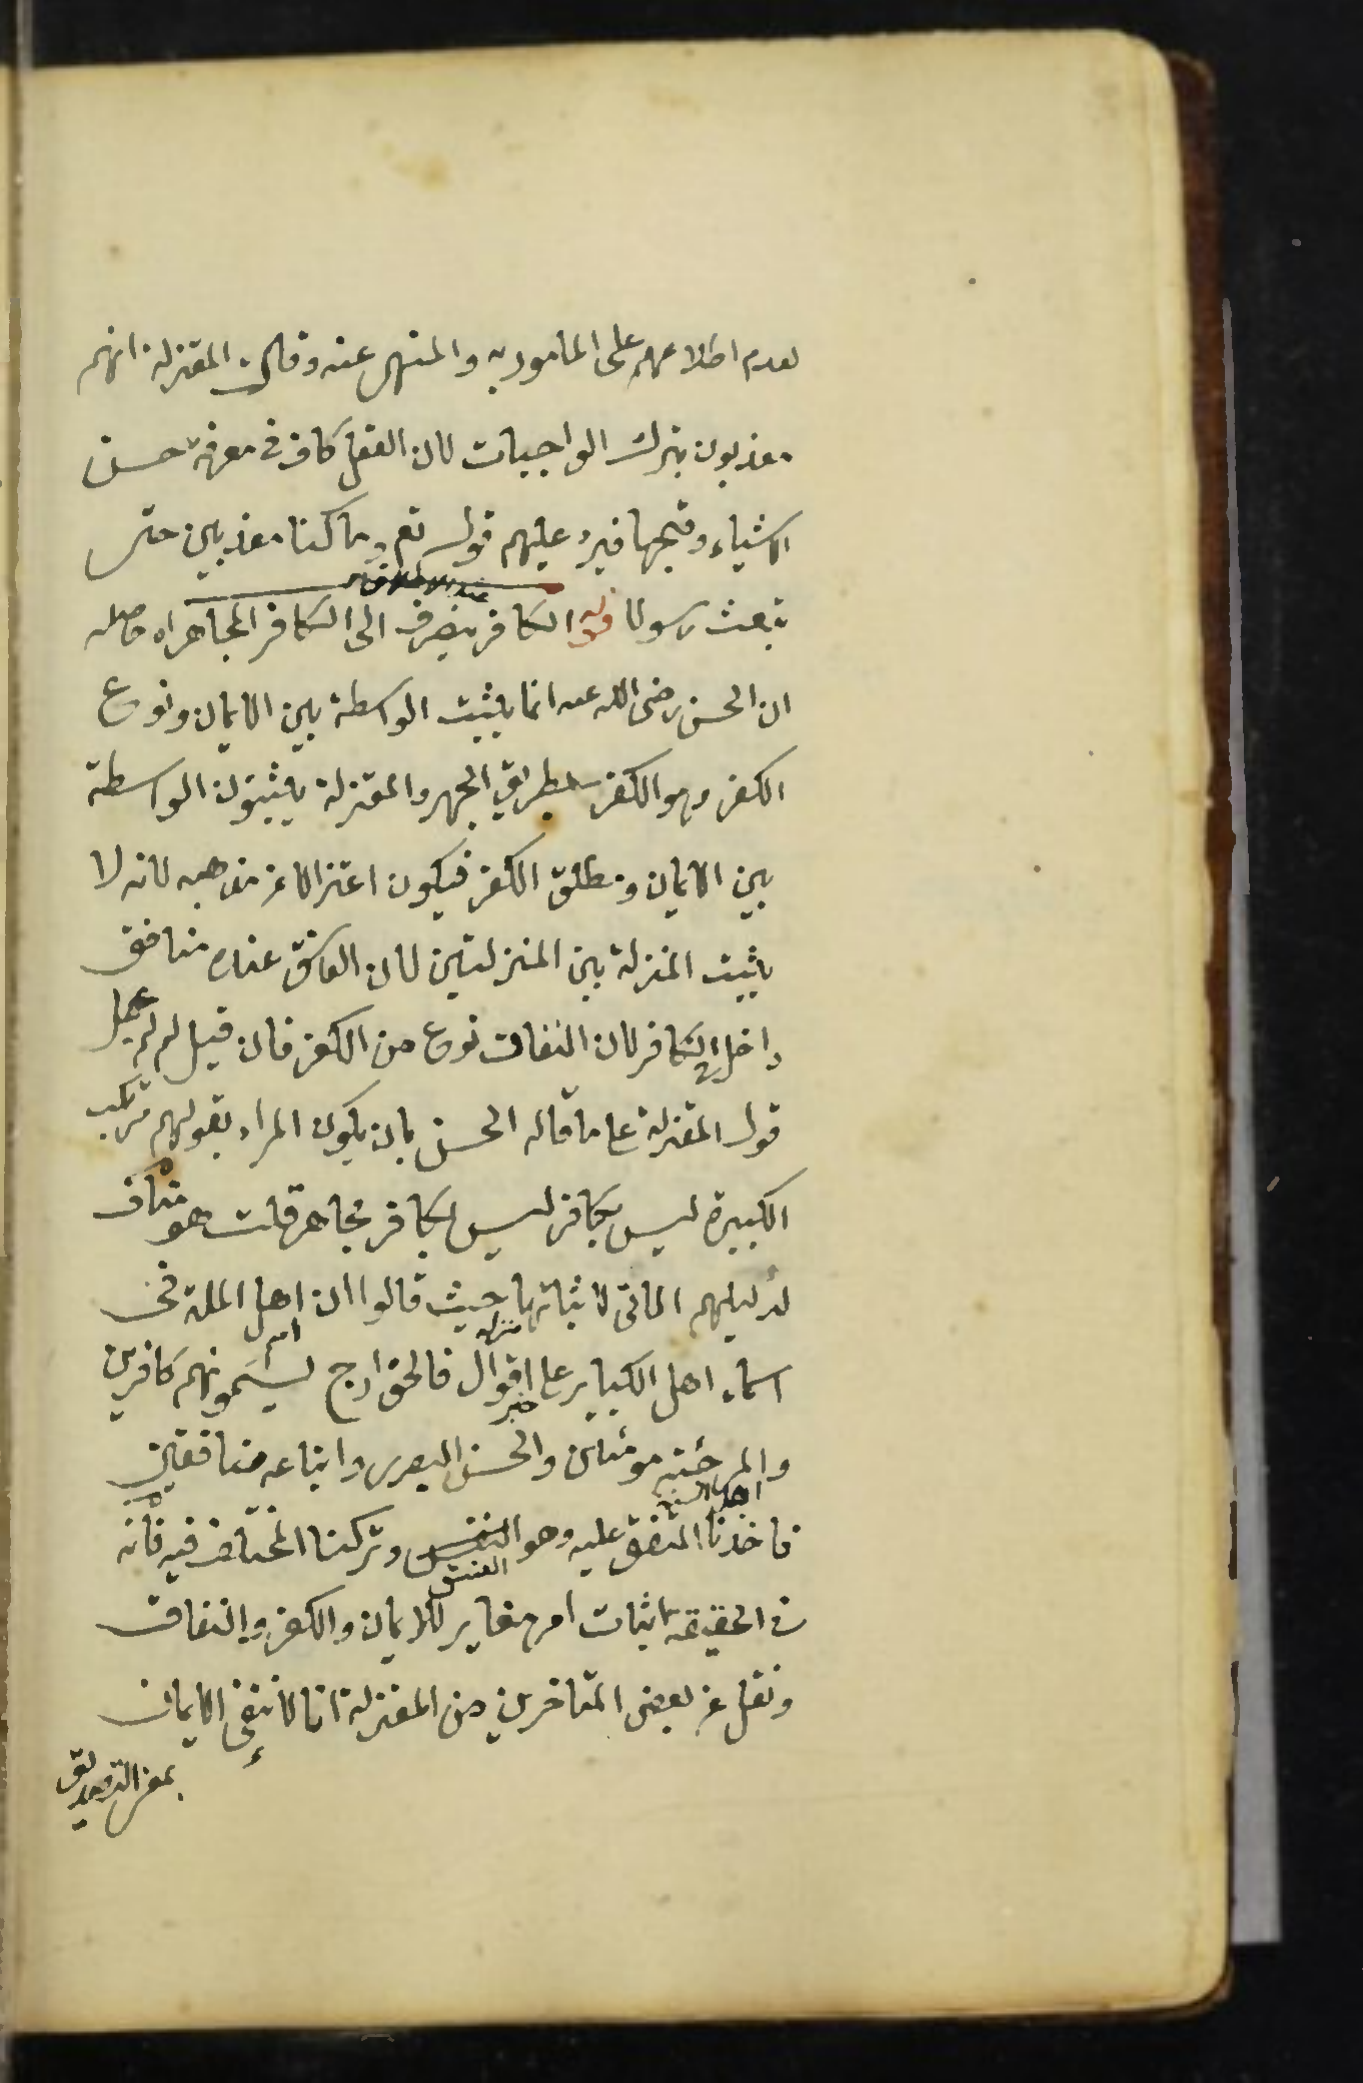 لعدم اطلاعهم على المأمور به والمنهى عنه وقالت المعتزلة انهم
معذبون بترك الواجبات لان العقل كاف فى معرفة حسن
الاشياء وقبحها فيرد عليهم قوله تع وما كنا معذبين حتى
نبعث رسولا قوله الكافر ينصرف الى الكافر المجاهر اه حاصله
عند الاطلاق
ان الحسن رضى الله عنه انما يثبت الواسطة بين الايمان ونوع
الكفر وهو الكفر بطريق الجهر والمعتزلة يثبتون الواسطة
بين الايمان ومطلق الكفر فيكون اعتزالا عن مذهبه لانه لا
يثبت المنزلة بين المنزلتين لان الفاسق عنده منافق
داخل فى الكافر لان النفاق نوع من الكفر فان قيل لم لم يحمل
قول المعتزلة على ما قاله الحسن بان يكون المراد بقولهم مرتكب
الكبيرة ليس بكافر ليس بكافر مجاهر قلت هو مناف
لدليلهم الماتى لاثباتها حيث قالوا ان اهل الملة فى
اسماء اهل الكباير على اقوال فالخوارج يسمونهم كافرين
والمرجئة مؤمنين والحسن البصرى واتباعه منافقين
فاخذنا المتفق عليه وهو الفسق وتركنا المختلف فيه فانه
فى الحقيقة اثبات امر مغاير للايمان والكفر والنفاق
ونقل عن بعض المتاخرين من المعتزلة انا لا ننفى الايمان
بمعنى التصديق